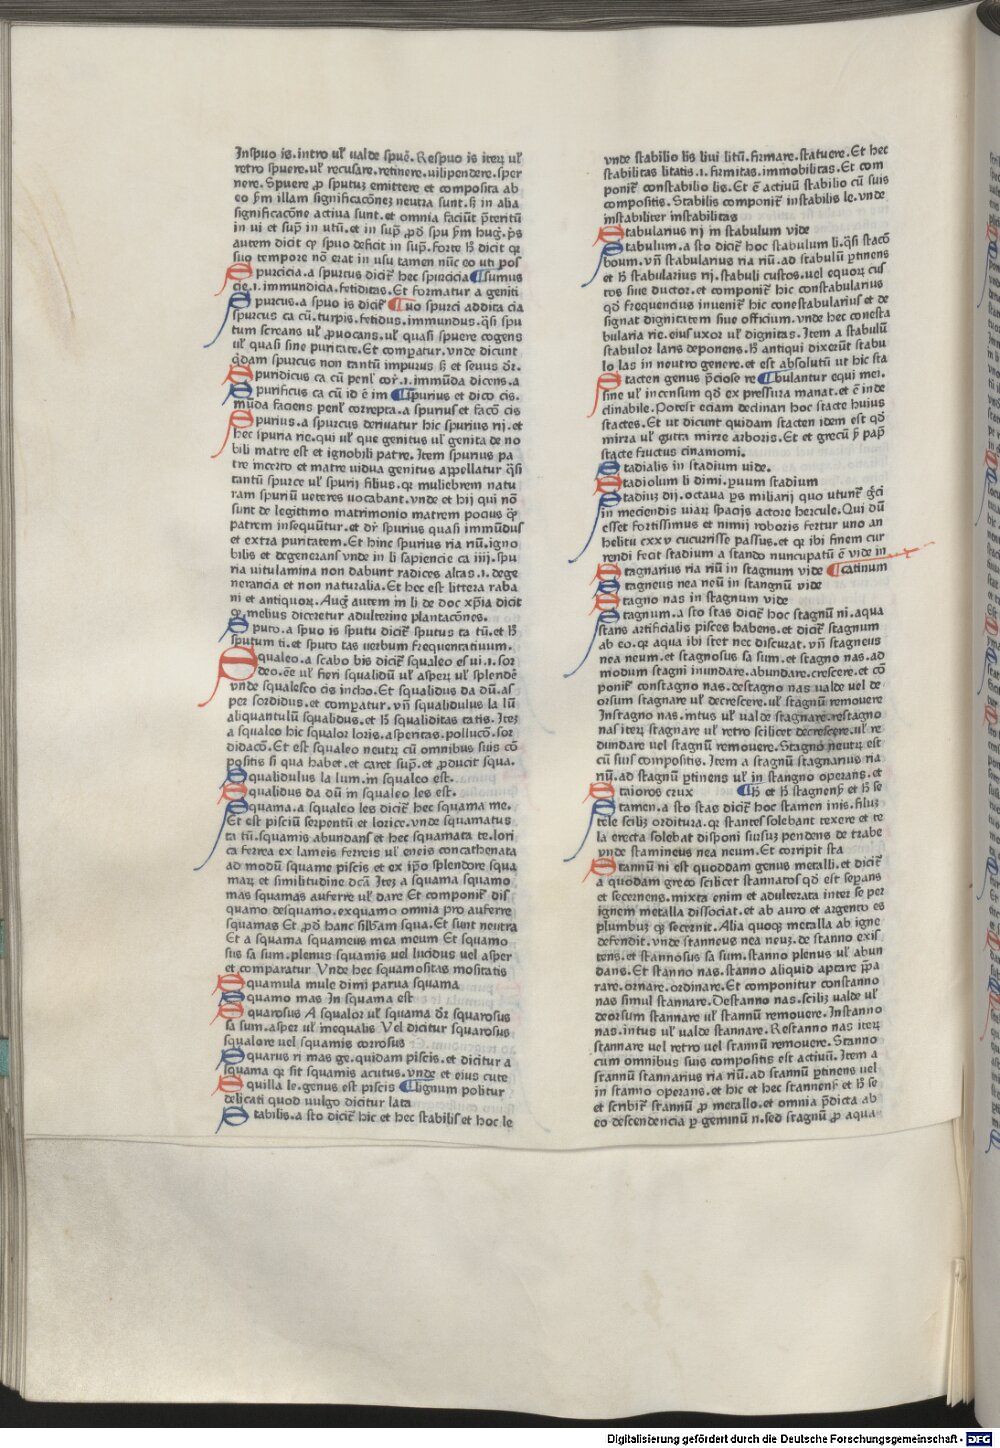 Inspuo is.intro ul̕ ualde spue̅.Respuo is iteꝝ ul̕
retro spuere.ul̕ recusare.retinere.uilipendere.sper
nere.Spuere ꝓ sputuꝫ emittere et composita ab
eo ẜm illam significac̅o̅eꝫ neutra sunt.ẜꝫ in alia
significac̅o̅e actiua sunt.et omnia faciūt p̅teritū
in ui et sup̅ in utū.et in sup̅ ꝓd̅ spu ẜm hug̅.p̅s
autem dicit ꝙ spuo deficit in sup̅.forte h̅ dicit qꝛ
suo tempore nō erat in usu tamen nūc eo uti pos
Spurcicia.a spurcus dicit̅ hec spurcicia ¶sumus
cie.i.immundicia.fetiditas.Et formatur a geniti
Spurcus.a spuo is dicit̅ ¶uo spurci addita cia
spurcus ca cū.turpis.fetidus.immundus.q̅si spu
tum screans ul̕ ꝓuocans.ul̕ quasi spuere cogens
ul̕ quasi sine puritate.Et comꝑatur.vnde dicunt
q̅dam spurcus non tantū impurus ẜꝫ et seuus d̅r.
Spuridicus ca cū penl̕ cor̅.i.immūda dicens.a
Spurificus ca cū id ē im ¶spurius et dico cis.
mūda faciens penl̕ correpta.a spurius et facō cis
Spurius.a spurcus deriuatur hic spurius rij.et
hec spuria rie.qui ul̕ que genitus ul̕ genita de no
bili matre est et ignobili patre.Item spurius pa
tre incerto et matre uidua genitus appellatur q̅si
tantū spurce ul̕ spurij filius.qꝛ muliebrem natu
ram spuriū ueteres uocabant.vnde et hij qui nō
sunt de legitimo matrimonio matrem pocius q̅ꝫ
patrem insequūtur.et d̅r spurius quasi immūdus
et extra puritatem.Et hinc spurius ria riū.igno
bilis et degenerans vnde in li sapiencie ca iiij.spu
ria uitulamina non dabunt radices altas.i.dege
nerancia et non naturalia.Et hec est littera raba
ni et antiquoꝝ.Aug̅ autem in li de doc xp̅ia dicit
qꝛ melius diceretur adulterine plantacōnes.
Sputo.a spuo is sputu dicit̅ sputus ta tū.et h̅
sputum ti.et sputo tas uerbum frequentatiuum.
Squaleo.a scabo bis dicit̅ squaleo es ui.i.sor
deo.ēe ul̕ fieri squalidū ul̕ asperꝫ ul̕ splendē
vnde squalesco cis incho.Et squalidus da dū.as
per sordidus.et comꝑatur.vn̄ squalidulus la lū
aliquantulū squalidus.et h̅ squaliditas tatis.Iteꝫ
a squaleo hic squalor loris.asperitas.pollucō.sor
didacō.Et est squaleo neutꝝ cū omnibus suis cō
positis si qua habet.et caret sup̅.et ꝓducit squa.
Squalidulus la lum.in squaleo est.
Squalidus da dū in squaleo les est.
Squama.a squaleo les dicit̅ hec squama me.
Et est pisciū serpentū et lorice.vnde squamatus
ta tū.squamis abundans et hec squamata te.lori
ca ferrea ex lameis ferreis ul̕ eneis concathenata
ad modū squame piscis et ex ip̅o splendore squa
maꝝ et similitudine dc̅a Iteꝫ a squama squamo
mas squamas auferre ul̕ dare Et componit̅ dis
quamo desquamo.exquamo omnia pro auferre
squamas Et ꝓd̅ hanc sillbam squa.Et sunt neutra
Et a squama squameus mea meum Et squamo
sus sa sum.plenus squamis uel lucidus uel asper
et comparatur Vnde hec squamositas mositatis
Squamula mule dimi parua squama
Squamo mas In squama est
Squarosus A squalor ul̕ squama d̅r squarosus
sa sum.asper ul̕ inequalis Vel dicitur squarosus
squalore uel squamis corrosus
Squarus ri mas ge.quidam piscis.et dicitur a
squama qꝛ sit squamis acutus.vnde et eius cute
Squilla le.genus est piscis ¶lignum politur
delicati quod uulgo dicitur lata
Stabilis.a sto dicit̅ hic et hec stabilis et hoc le
vnde stabilio lis liui litū.firmare.statuere.Et hec
stabilitas litatis.i.firmitas.immobilitas.Et com
ponit̅ constabilio lis.Et ē actiuū stabilio cū suis
compositis.Stabilis componit̅ instabilis le.vnde
instabiliter instabilitas
Stabularius rij in stabulum vide
Stabulum.a sto dicit̅ hoc stabulum li.q̅si stacō
boum.vn̄ stabularius ria riū.ad stabulū ꝑtinens
et h̅ stabularius rij.stabuli custos.uel equoꝝ cus
tos siue ductor.et componit̅ hic constabularius
qd̅ frequencius inuenit̅ hic conestabularius et de
signat dignitatem siue officium.vnde hec conesta
bularia rie.eius uxor ul̕ dignitas.Item a stabulū
stabulor laris deponens.h̅ antiqui dixerūt stabu
lo las in neutro genere.et est absolutū ut hic sta
Stacten genus p̅ciose re ¶bulantur equi mei.
sine ul̕ incensum qd̅ ex pressura manat.et ē inde
clinabile.Potest eciam declinari hoc stacte huius
stactes.Et ut dicunt quidam stacten idem est qd̅
mirra ul̕ gutta mirre arboris.Et et grecū ẜm pap̅
stacte fructus cinamomi.
Stadialis in stadium vide.
Stadiolum li dimi.ꝑuum stadium
Stadiuꝫ dij.octaua ꝑs miliarij quo utunt̅ g̅ci
in meciendis uiaꝝ spacijs actore hercule.Qui dū
esset fortissimus et nimij roboris fertur uno an
helitu cxxv cucurrisse passus.et qꝛ ibi finem cur
rendi fecit stadium a stando nuncupatū ē vide in
Stagnarius ria riū in stagnum vide ¶catinum
Stagneus nea neū in stangnū vide
Stagno nas in stagnum vide
Stagnum.a sto stas dicit̅ hoc stagnū ni.aqua
stans artificialis pisces habens.et dicit̅ stagnum
ab eo.qꝛ aqua ibi stet nec discurat.vn̄ stagneus
nea neum.et stagnosus sa sum.et stagno nas.ad
modum stagni inundare.abundare.crescere.et cō
ponit̅ constagno nas.destagno nas ualde uel de
orsum stagnare ul̕ decrescere.ul̕ stagnū remouere
Instagno nas.intus ul̕ ualde stagnare.restagno
nas iteꝝ stagnare ul̕ retro scilicet decrescere.ul̕ re
dundare uel stagnū remouere.Stagno neutꝝ est
cū suis compositis.Item a stagnū stagnarius ria
riū.ad stagnū ꝑtinens ul̕ in stangno operans.et
Staioros crux ¶h̅ et h̅ stagnens̅ et h̅ se
Stamen.a sto stas dicit̅ hoc stamen inis.filuꝫ
tele sciliꝫ orditura.qꝛ stantes solebant texere et te
la erecta solebat disponi sursuꝫ pendens de trabe
vnde stamineus nea neum.Et corripit sta
Stannū ni est quoddam genus metalli.et dicit̅
a quodam greco scilicet stannatos qd̅ est seꝑans
et secernens.mixta enim et adulterata inter se per
ignem metalla dissociat.et ab auro et argento es
plumbuꝫ qꝫ secernit.Alia quoqꝫ metalla ab igne
defendit.vnde stanneus nea neuꝫ.de stanno exis
tens.et stannosus sa sum.stanno plenus ul̕ abun
dans.Et stanno nas.stanno aliquid aptare p̅pa
rare.ornare.ordinare.Et componitur constanno
nas simul stannare.Destanno nas.sciliꝫ ualde ul̕
deorsum stannare ul̕ stannū remouere.Instanno
nas.intus ul̕ ualde stannare.Restanno nas iteꝝ
stannare uel retro uel stannū remouere.Stanno
cum omnibus suis compositis est actiuū.Item a
stannū stannarius ria riū.ad stannū ꝑtinens uel
in stanno operans.et hic et hec stannens̅ et h̅ se
et scribit̅ stannū ꝓ metallo.et omnia p̅dicta ab
eo descendencia ꝑ geminū n.sed stagnū ꝓ aqua
Digitalisierung gefördert durch die Deutsche Forschungsgemeinschaft - DFG